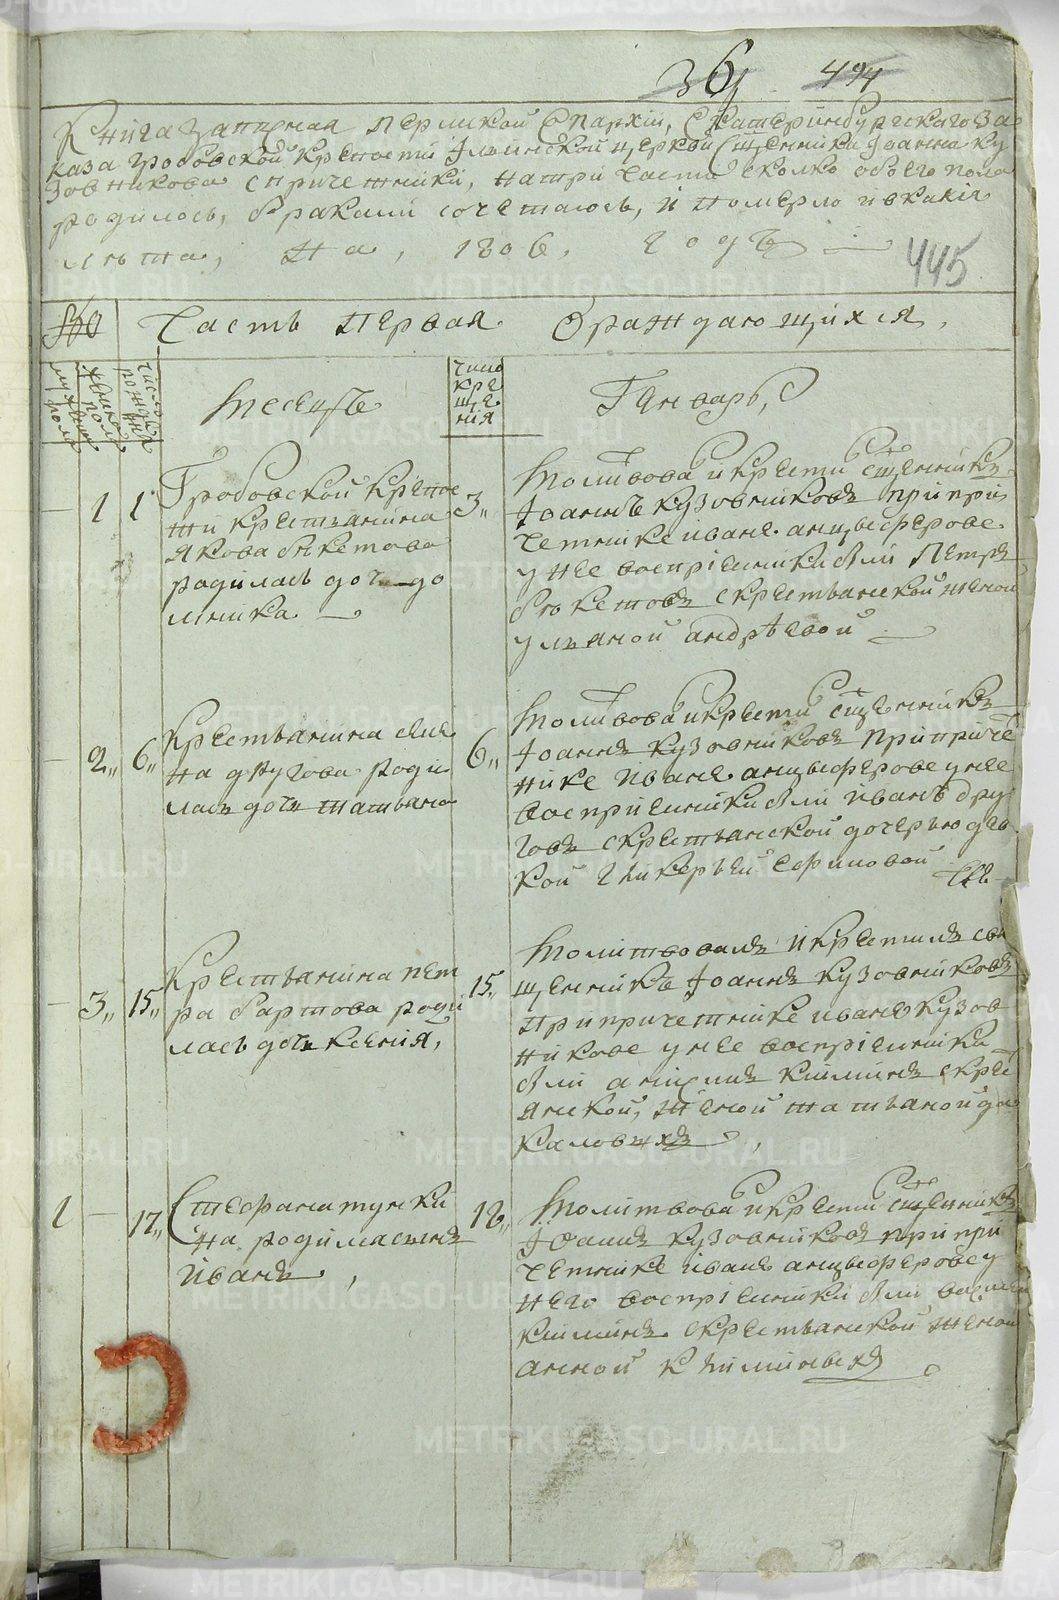 36
494
Книга записная Пермской Епархіи, Екатеринбургскаго за
каза Гробовской крепости Ильинской церкви Сщенника Іоанна Ку
зовникова с причетники, на три части сколко обоего пола
родилось, браками сочеталось, и померло и в какія
лѣта, На, 1806, годъ
445
Часть Первая О раждающихся,
мужеска пола
женска пола
число рожде нія
Месецъ
число кре ще нія
Генварь,
1 1 Гробовской крепос
ти крестьянина
Якова Бекетова
родилась дочь До
мника
3 Молитвова и крести сщенникъ
Іоаннъ Кузовниковъ при при
четнике Иване Анцыферове
у нее воспріемники были Петръ
Бекетовъ с крестьянской женой
Ульяной Андрѣевой
2 6 Крестьянина
на Другова роди
лась дочь Татьяна
6 Молитвова и крести сщенникъ
Іоаннъ Кузовниковъ при приче
нике Иване Анцыферове у нее
воспріемники были Иванъ Дру
говъ с крестьянской дочерью дев
кой Гликерьей Ефимовой
3 15 Крестьянина Пет
ра Бартова роди
лась дочь Ксенія,
15 Молитвовалъ и крестилъ свя
щенникъ Іоаннъ Кузовниковъ
при причетнике Иване Кузов
никове у нее воспріемника
были с крес
янской, женой Татьяной
1 17 Стефана
на родилъ сынъ
Иванъ,
18 Молитвова и крести сщенникъ
Іоаннъ Кузовниковъ при при
четнике Иване Анцыферове у
него воспріемники были
с крестьянской женой
Анной
METRIKI.GASO-URAL.RU